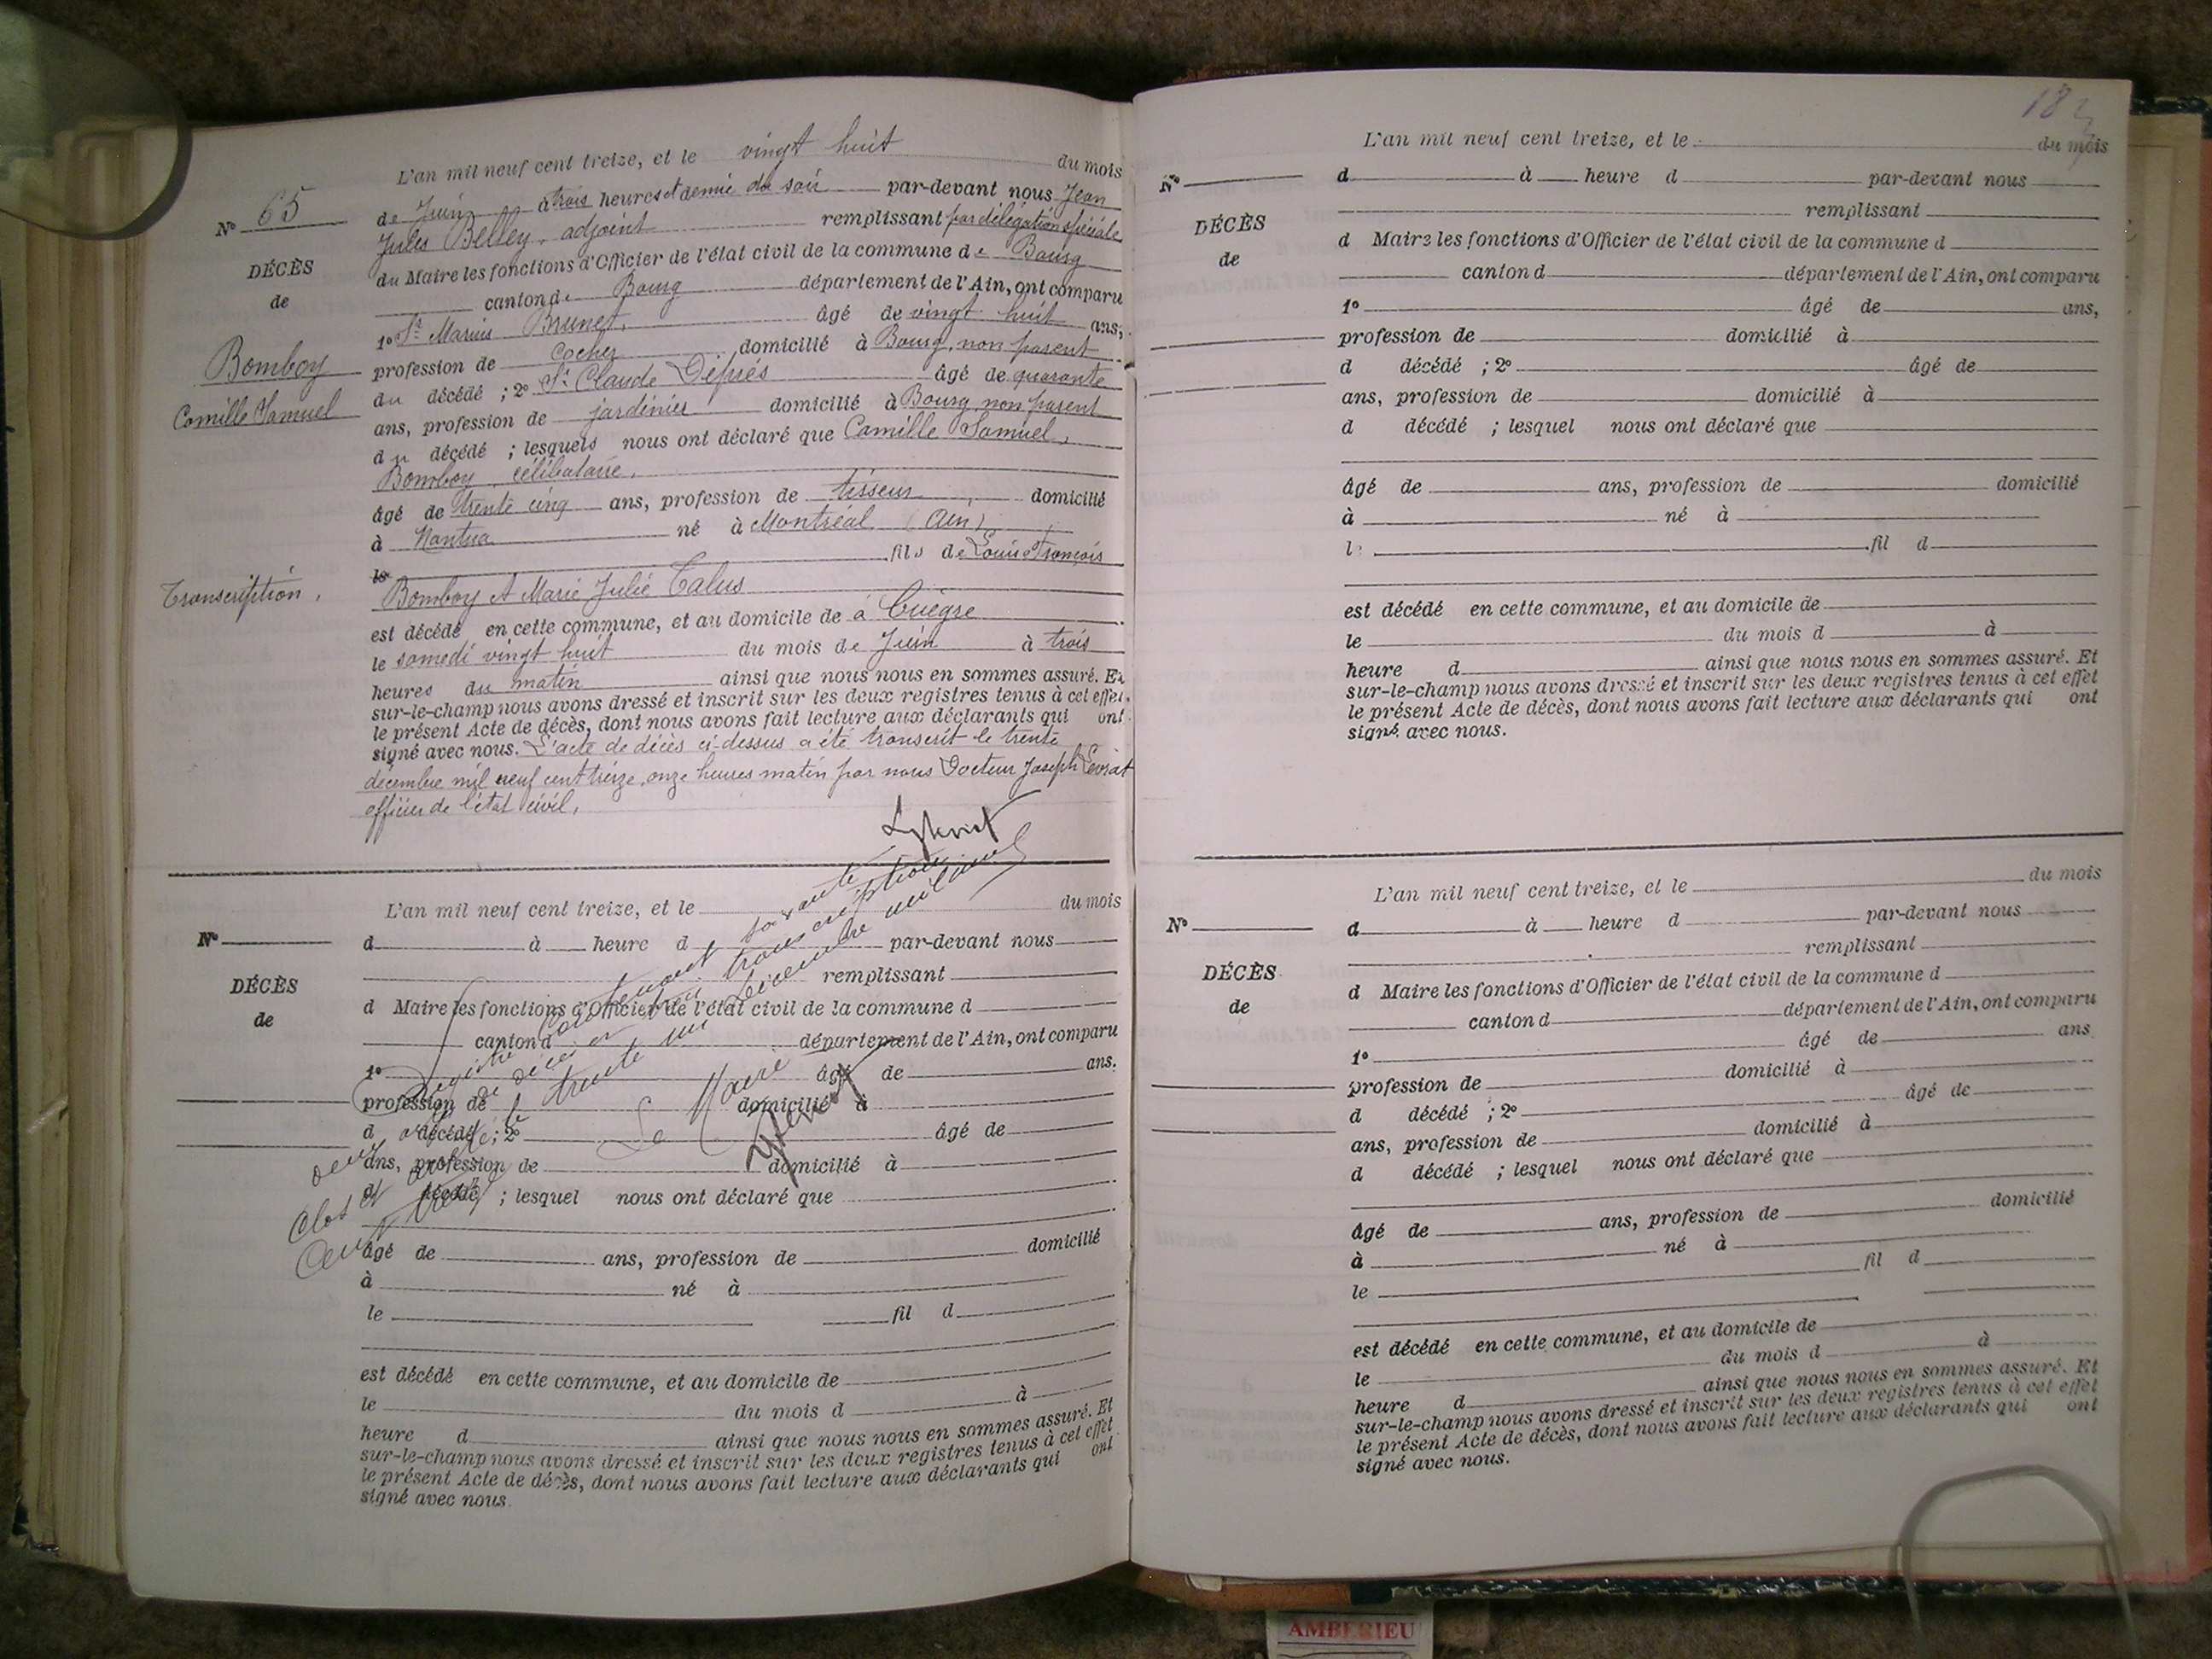 L'an mil neuf cent treize, et le vingt huit du mois
Nº 65
de Juin à trois heures et demie du soir par-devant nous Jean
Jules Belley, adjoint remplissant par délégation spéciale
DÉCÈS
du Maire les fonctions d'Officier de l'état civil de la commune de Bourg
de
canton de Bourg département de l'Ain, ont comparu
1º Sr Marius Brunet, âgé de vingt huit ans,
Bomboy
profession de Cocher domicilié à Bourg, non parent
du décédé ; 2º Sr Claude Després âgé de quarante
Camille Samuel
ans, profession de jardinier domicilié à Bourg non parent
du décédé ; lesquels nous ont déclaré que Camille Samuel,
Bomboy célibataire,
âgé de trente cinq ans, profession de tisseur, domicilié
à Nantua né à Montréal (Ain)
le fils de Louis François
Transcription.
Bomboy et Marie Julie Talus
est décédé en cette commune, et au domicile de à Cuègre
le samedi vingt huit du mois de Juin à trois
heures du matin ainsi que nous nous en sommes assuré. Et
sur-le-champ nous avons dressé et inscrit sur les deux registres tenus à cet effet,
le présent Acte de décès, dont nous avons fait lecture aux déclarants qui ont
signé avec nous. L'acte de décès ci-dessus a été transcrit le trente
décembre mil neuf cent treize, onze heures matin par nous Docteur Joseph Levrat
officier de l'état civil,
L'an mil neuf cent treize, et le du mois
Nº
d à heure d par-devant nous
remplissant
DÉCÈS
d Maire les fonctions d'Officier de l'état civil de la commune d
de
canton d département de l'Ain, ont comparu
1º âgé de ans.
profession de domicilié à
d décédé ; 2º âgé de
ans, profession de domicilié à
d décédé ; lesquel nous ont déclaré que
âgé de ans, profession de domicilié
à né à
le fil d
est décédé en cette commune, et au domicile de
le du mois d à
heure d ainsi que nous nous en sommes assuré. Et
sur-le-champ nous avons dressé et inscrit sur les deux registres tenus à cet effet
le présent Acte de décès, dont nous avons fait lecture aux déclarants qui ont
signé avec nous.
registre contenant soixante
de décès et transcription
Clos et arrêté le trente un décembre mil neuf
Cent treize
Le Maire
L'an mil neuf cent treize, et le du mois
Nº
d à heure d par-devant nous
remplissant
DÉCÈS
d Maire les fonctions d'Officier de l'état civil de la commune d
de
canton d département de l'Ain, ont comparu
1º âgé de ans,
profession de domicilié à
d décédé ; 2º âgé de
ans, profession de domicilié à
d décédé ; lesquel nous ont déclaré que
âgé de ans, profession de domicilié
à né à
le fil d
est décédé en cette commune, et au domicile de
le du mois d à
heure d ainsi que nous nous en sommes assuré. Et
sur-le-champ nous avons dressé et inscrit sur les deux registres tenus à cet effet
le présent Acte de décès, dont nous avons fait lecture aux déclarants qui ont
signé avec nous.
L'an mil neuf cent treize, et le du mois
Nº
d à heure d par-devant nous
remplissant
DÉCÈS
d Maire les fonctions d'Officier de l'état civil de la commune d
de
canton d département de l'Ain, ont comparu
1º âgé de ans
profession de domicilié à
d décédé ; 2º âgé de
ans, profession de domicilié à
d décédé ; lesquel nous ont déclaré que
âgé de ans, profession de domicilié
à né à
le fil d
est décédé en cette commune, et au domicile de
le du mois d à
heure d ainsi que nous nous en sommes assuré. Et
sur-le-champ nous avons dressé et inscrit sur les deux registres tenus à cet effet
le présent Acte de décès, dont nous avons fait lecture aux déclarants qui ont
signé avec nous.
AMBERIEU